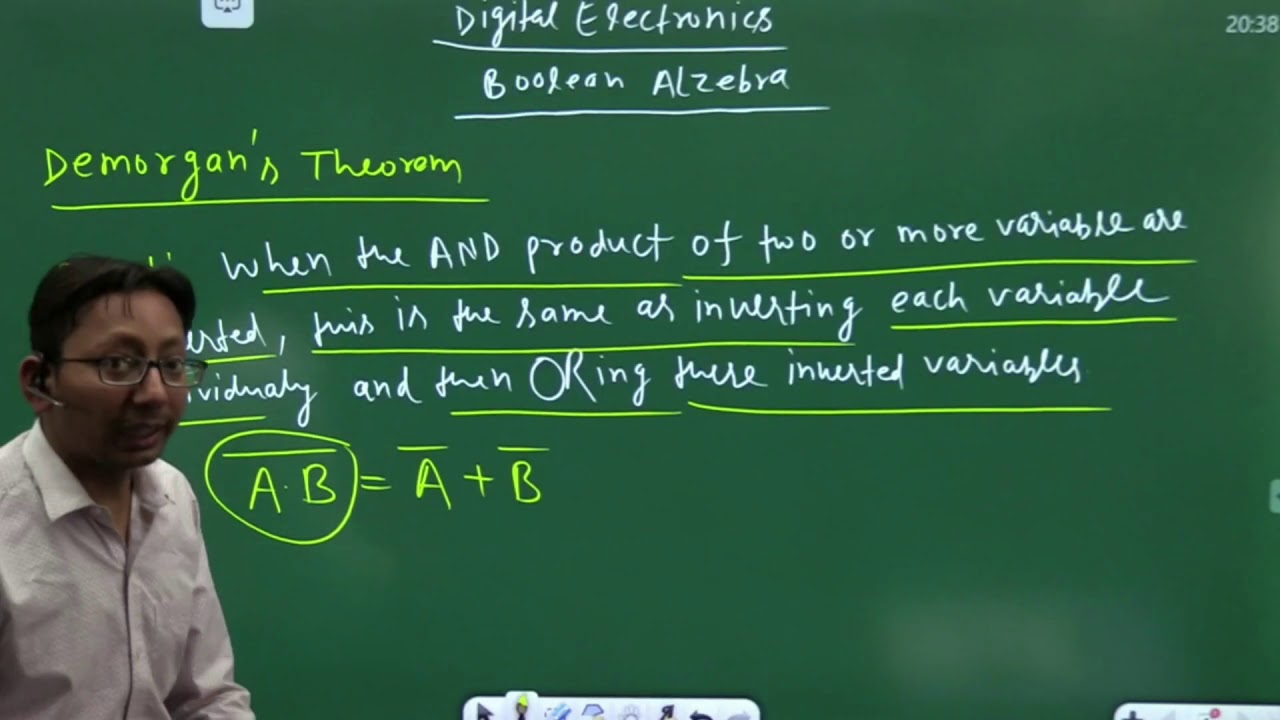 Digital Electronics
20:38
Boolean Alzebra
Demorgan's Theorem
When the AND product of two or more variable are
erted, this is the same as inverting each variable
ividualy and then ORing these inverted variables
A̅.̅B̅ = A̅ + B̅